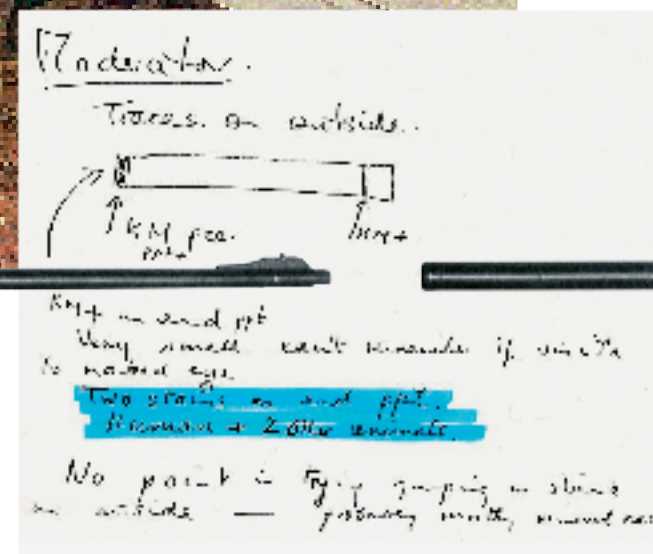 Moderator.
Traces on outside.
KM pos.
KM+
KM+ on end ppt
Very small can't remember if visible
to naked eye
Two stains on end ppt.
Human + 2 other animals.
No point in trying grouping on stains
on outside — probably mostly